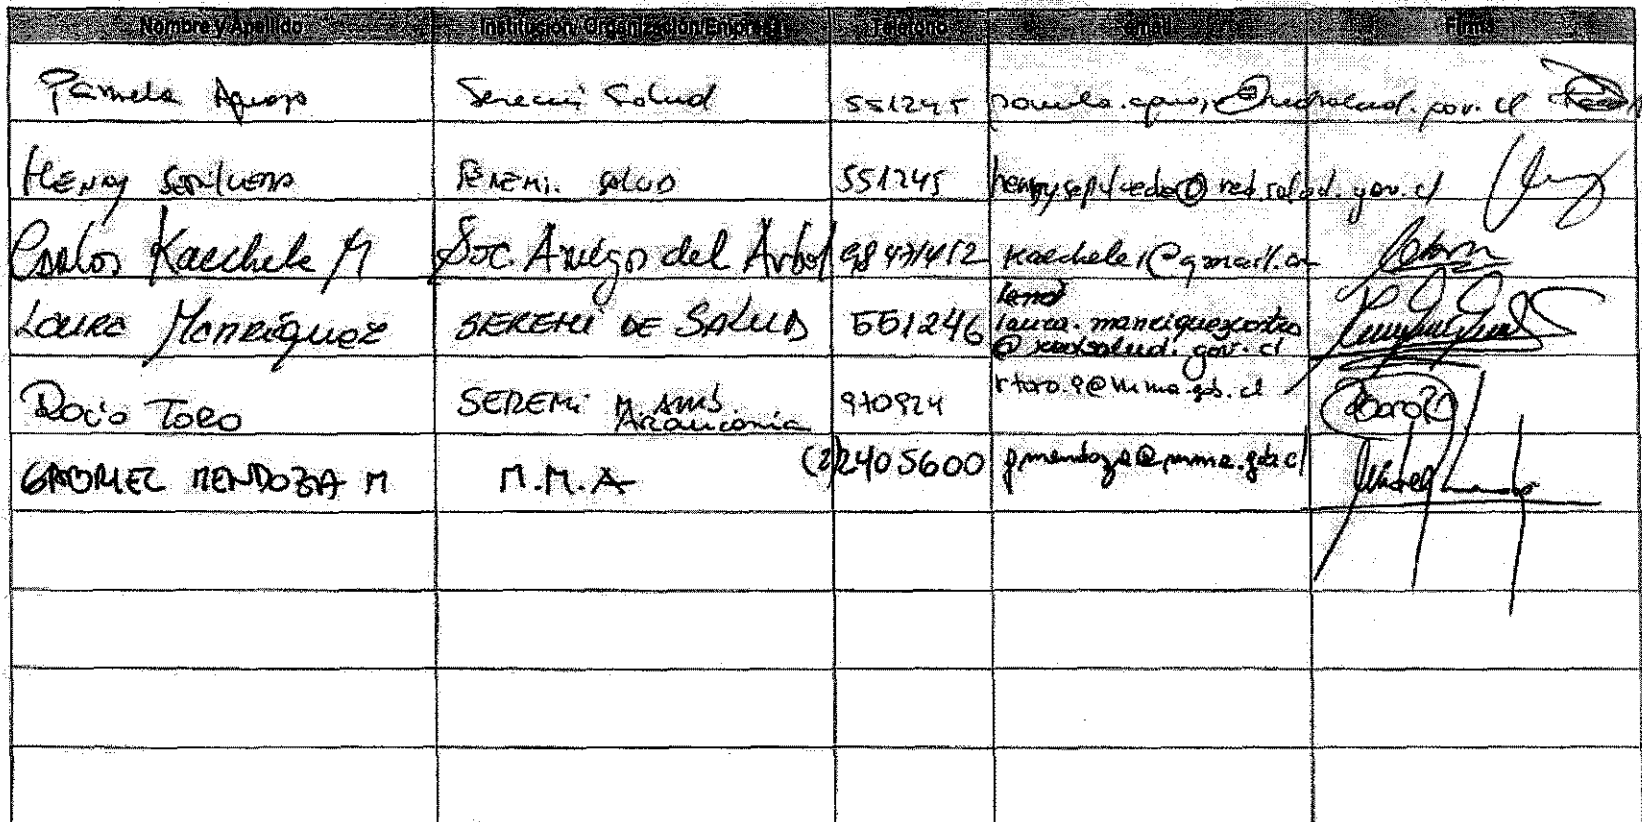 Nombre y Apellido Institución/Organización/Empresa Teléfono email Firma
Pamela Seremi Salud 551245
Henry Sepúlveda SEREMI. SALUD 551245 henry.sepulveda@redsalud.gov.cl
Carlos Kaechele M Soc. Amigos del Arbol 98471412 kaechele1@gmail.com
Laura Manríquez SEREMI DE SALUD 551246 laura.manriquezcastro
@redsalud.gov.cl
Rocío Toro SEREMI M. AMB. 970924 rtoro.9@mma.gob.cl
Araucanía
GABRIEL MENDOZA M M.M.A (2)2405600 gmendoza@mma.gob.cl